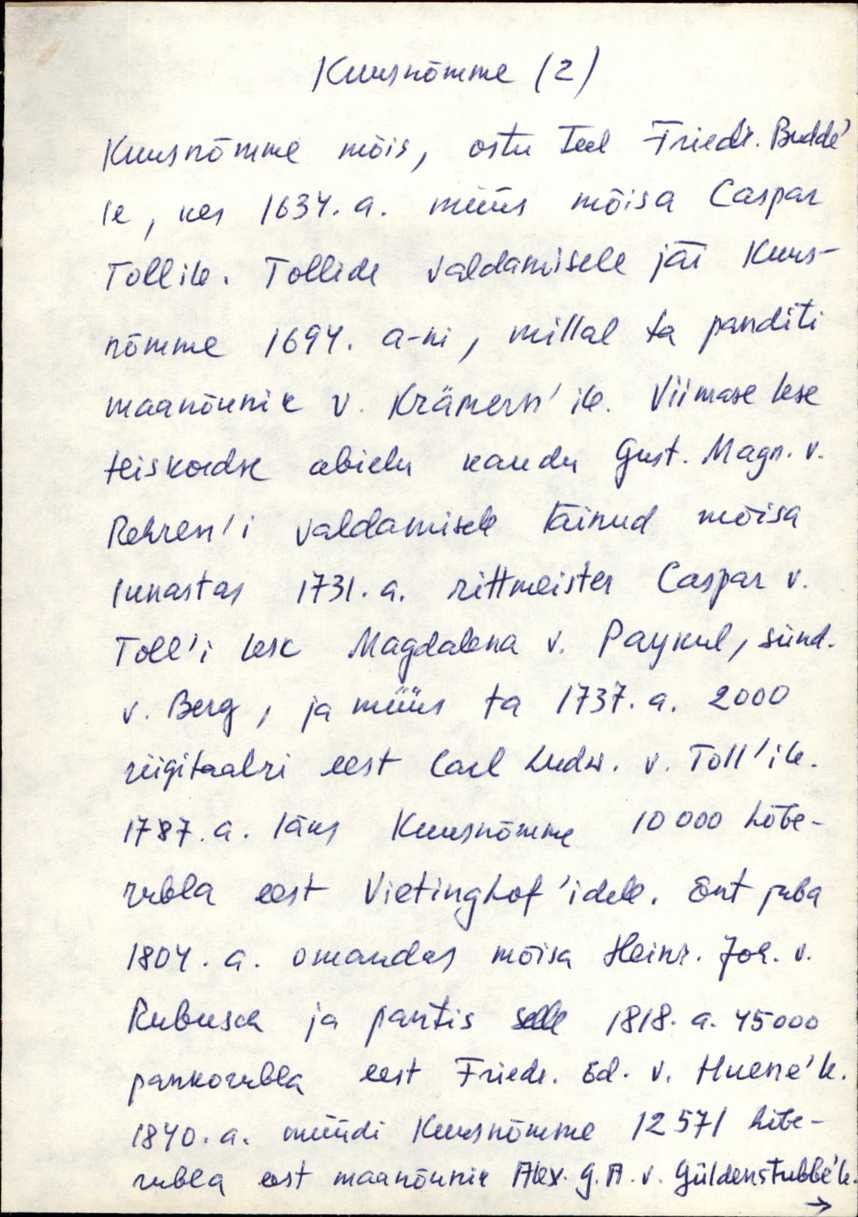 Kuusnõmme (2)
Kuusnõmme mõis, ostu teel Friedr. Budde'
le, kes 1634. a. müüs mõisa Caspar
Tollile. Tollide valdamisele jäi Kuus-
nõmme 1694. a-ni, millal ta panditi
maanõunik v. Krämern'ile. Viimase lese
teiskordse abielu kaudu Gust. Magn. v.
Rehren'i valdamisele läinud mõisa
lunastas 1731. a. rittmeister Caspar v.
Toll'i lesk Magdalena v. Paykul, sünd.
v. Berg, ja müüs ta 1737. a. 2000
riigitaalri eest Carl Ludw. v. Toll'ile.
1787. a. läks Kuusnõmme 10 000 hõbe-
rubla eest Vietinghof'idele. Ent juba
1804. a. omandas mõisa Heinr. Joh. v.
Rubusch ja pantis selle 1818. a. 45000
pankorubla eest Friedr. Ed. v. Huene'le.
1840. a. müüdi Kuusnõmme 12 571 hõbe-
rubla eest maanõunik Alex. G. A. v. Güldenstubbe'le.
→